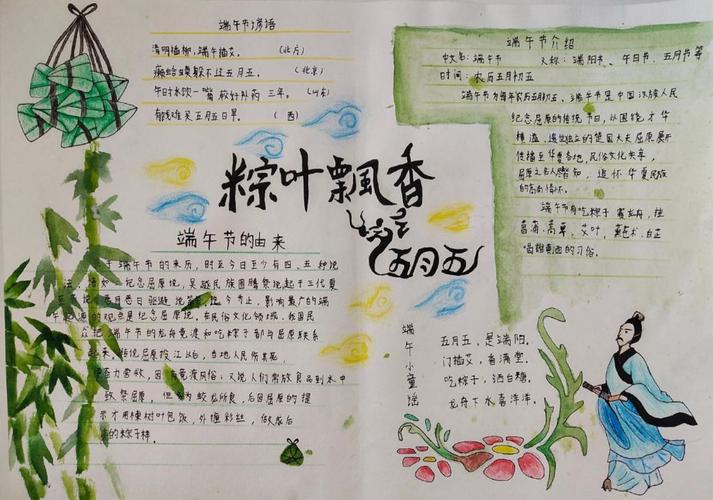 端午节谚语
清明插柳,端午插艾。 (北方)
癞蛤蟆躲不过五月五。 (北京)
午时水饮一嘴,较好补药三年。 (山东)
有钱难买五月五日旱。
端午节介绍
中文名:端午节 又称:端阳节、午日节、五月节等
时间:农历五月初五
端午节为每年农历五月初五,端午节是中国汉族人民
纪念屈原的传统节日,以围绕才华
横溢、遗世独立的楚国大夫屈原而
传播至华夏各地,民俗文化共享,
屈原之名人尽皆知,追怀华夏民族
的高尚情怀。
端午节有吃粽子,赛龙舟,挂
菖蒲、蒿草、艾叶,薰苍术、白芷
喝雄黄酒的习俗。
粽叶飘香
五月五
端午节的由来
端午节的来历,时至今日至少有四、五种说
法,诸如:纪念屈原说,吴越民族图腾祭说起于三代夏
五月恶日驱避说等,迄今为止,影响最广的端
的观点是纪念屈原说。在民俗文化领域,我国民
众把端午节的龙舟竞渡和吃粽子都与屈原联系
起来。传说屈原投江以后,当地人民伤其死,
又说人们常放食品到水中
致祭屈原,但多为蛟龙所食,后因屈原的提
示才用楝树叶包饭,外缠彩丝,做成后
的粽子样。
端午小童谣
五月五,是端阳。
门插艾,香满堂。
吃粽子,洒白糖。
龙舟下水喜洋洋。